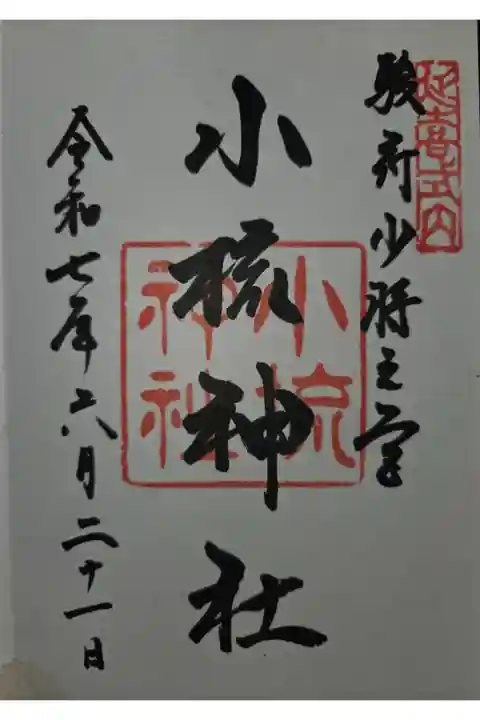 延喜式内
駿府少将之宮
小梳神社
小梳神社
令和七年六月二十一日